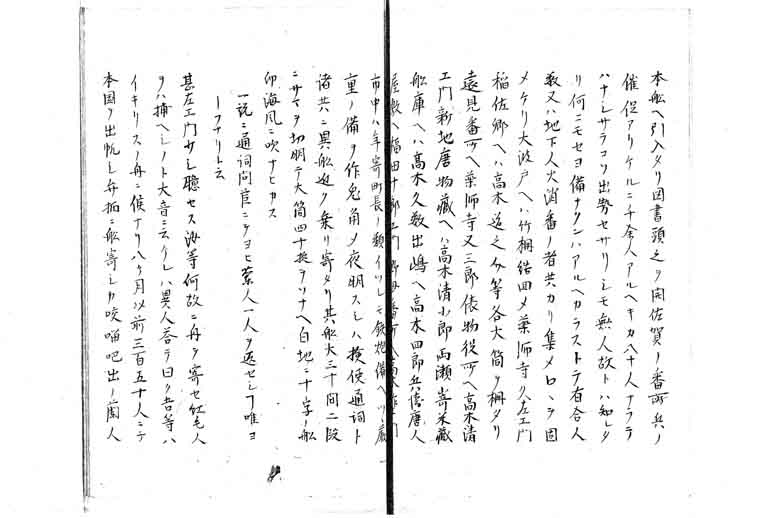 本船ヘ引入タリ因書頭之ヲ聞佐賀ノ番所兵ノ
催促アリケルニ千余人アルヘキカ八十人ナラテ
ハナシサラコソ出勢セサリシモ無人故トハ知レタ
リ何ニモセヨ備ナクンハアルヘカラストテ有合人
数又ハ地下人火消番ノ者共カリ集メ口々ヲ固
メケリ大波戸ヘハ竹柵結回メ薬師寺久左エ門
稲佐郷ヘハ高木道之介等各大筒ヲ構タリ
遠見番所ヘ薬師寺又三郎俵物役所ヘ高木清
エ門新地唐物蔵ヘハ高木清小郎両瀬嵜米蔵
船庫ヘハ高木久数出嶋ヘ高木四郎兵衛唐人
屋敷ヘ福田十郎エ門
市中ハ年寄町長ノ類イツレモ鉄炮備ヘツ厳
重ノ備ヲ作兎角メ夜明スレハ検使通詞ト
諸共ニ異船近ク乗リ寄タリ其船大三十間二段
ニサマヲ切明テ大筒四十挺ヲソナヘ白地ニ十字ノ船
印海風ニ吹ナヒカス
一説ニ通詞問官ニテヨヒ蘭人一人ヲ返セシヿ唯ヨ
ーフナリト云
甚左エ門サシ聴セス汝等何故ニ舟ヲ寄セ紅毛人
ヲハ捕ヘシノト大音ニ云ケレハ異人答テ曰ク吾等ハ
イキリスノ舟ニ候ナリ八ケ月以前三百五十人ニテ
本国ヲ出帆シ弁柄ニ船寄シカ咬𠺕吧出ノ蘭人